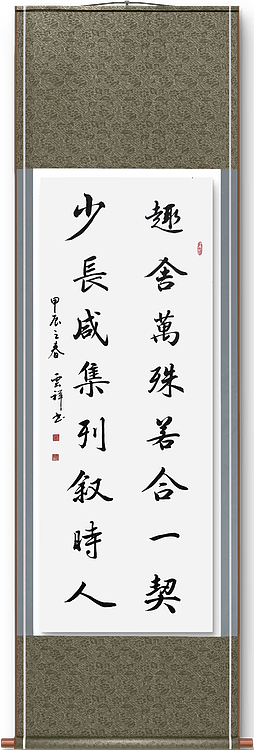 趣舍萬殊若合一契
少長咸集列叙時人
甲辰之春 雲祥书